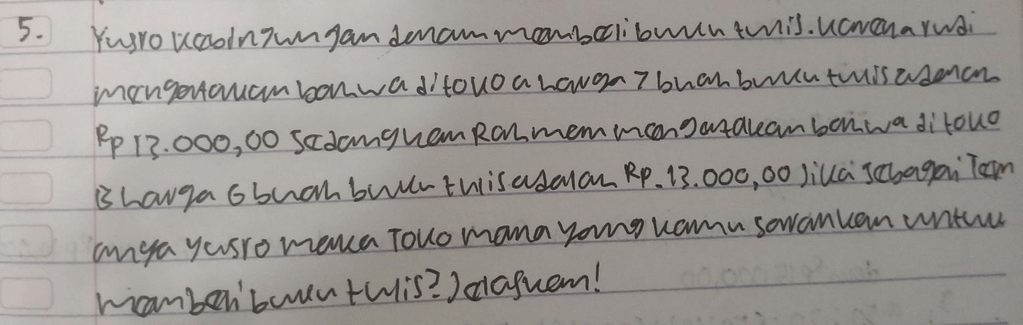 5. Yusro kebingungan dalam membeli buku tulis. Karena rudi
mengatakan bahwa di toko a harga 7 buah buku tulis adalah
Rp 13.000,00 sedangkan Rahmen mengatakan bahwa di toko
B harga 6 buah buku tulis adalah Rp. 13.000,00 Jika sebagai Tem
anya yusro maka Toko mana yang kamu sarankan untuk
membeli buku tulis? Jelaskan!